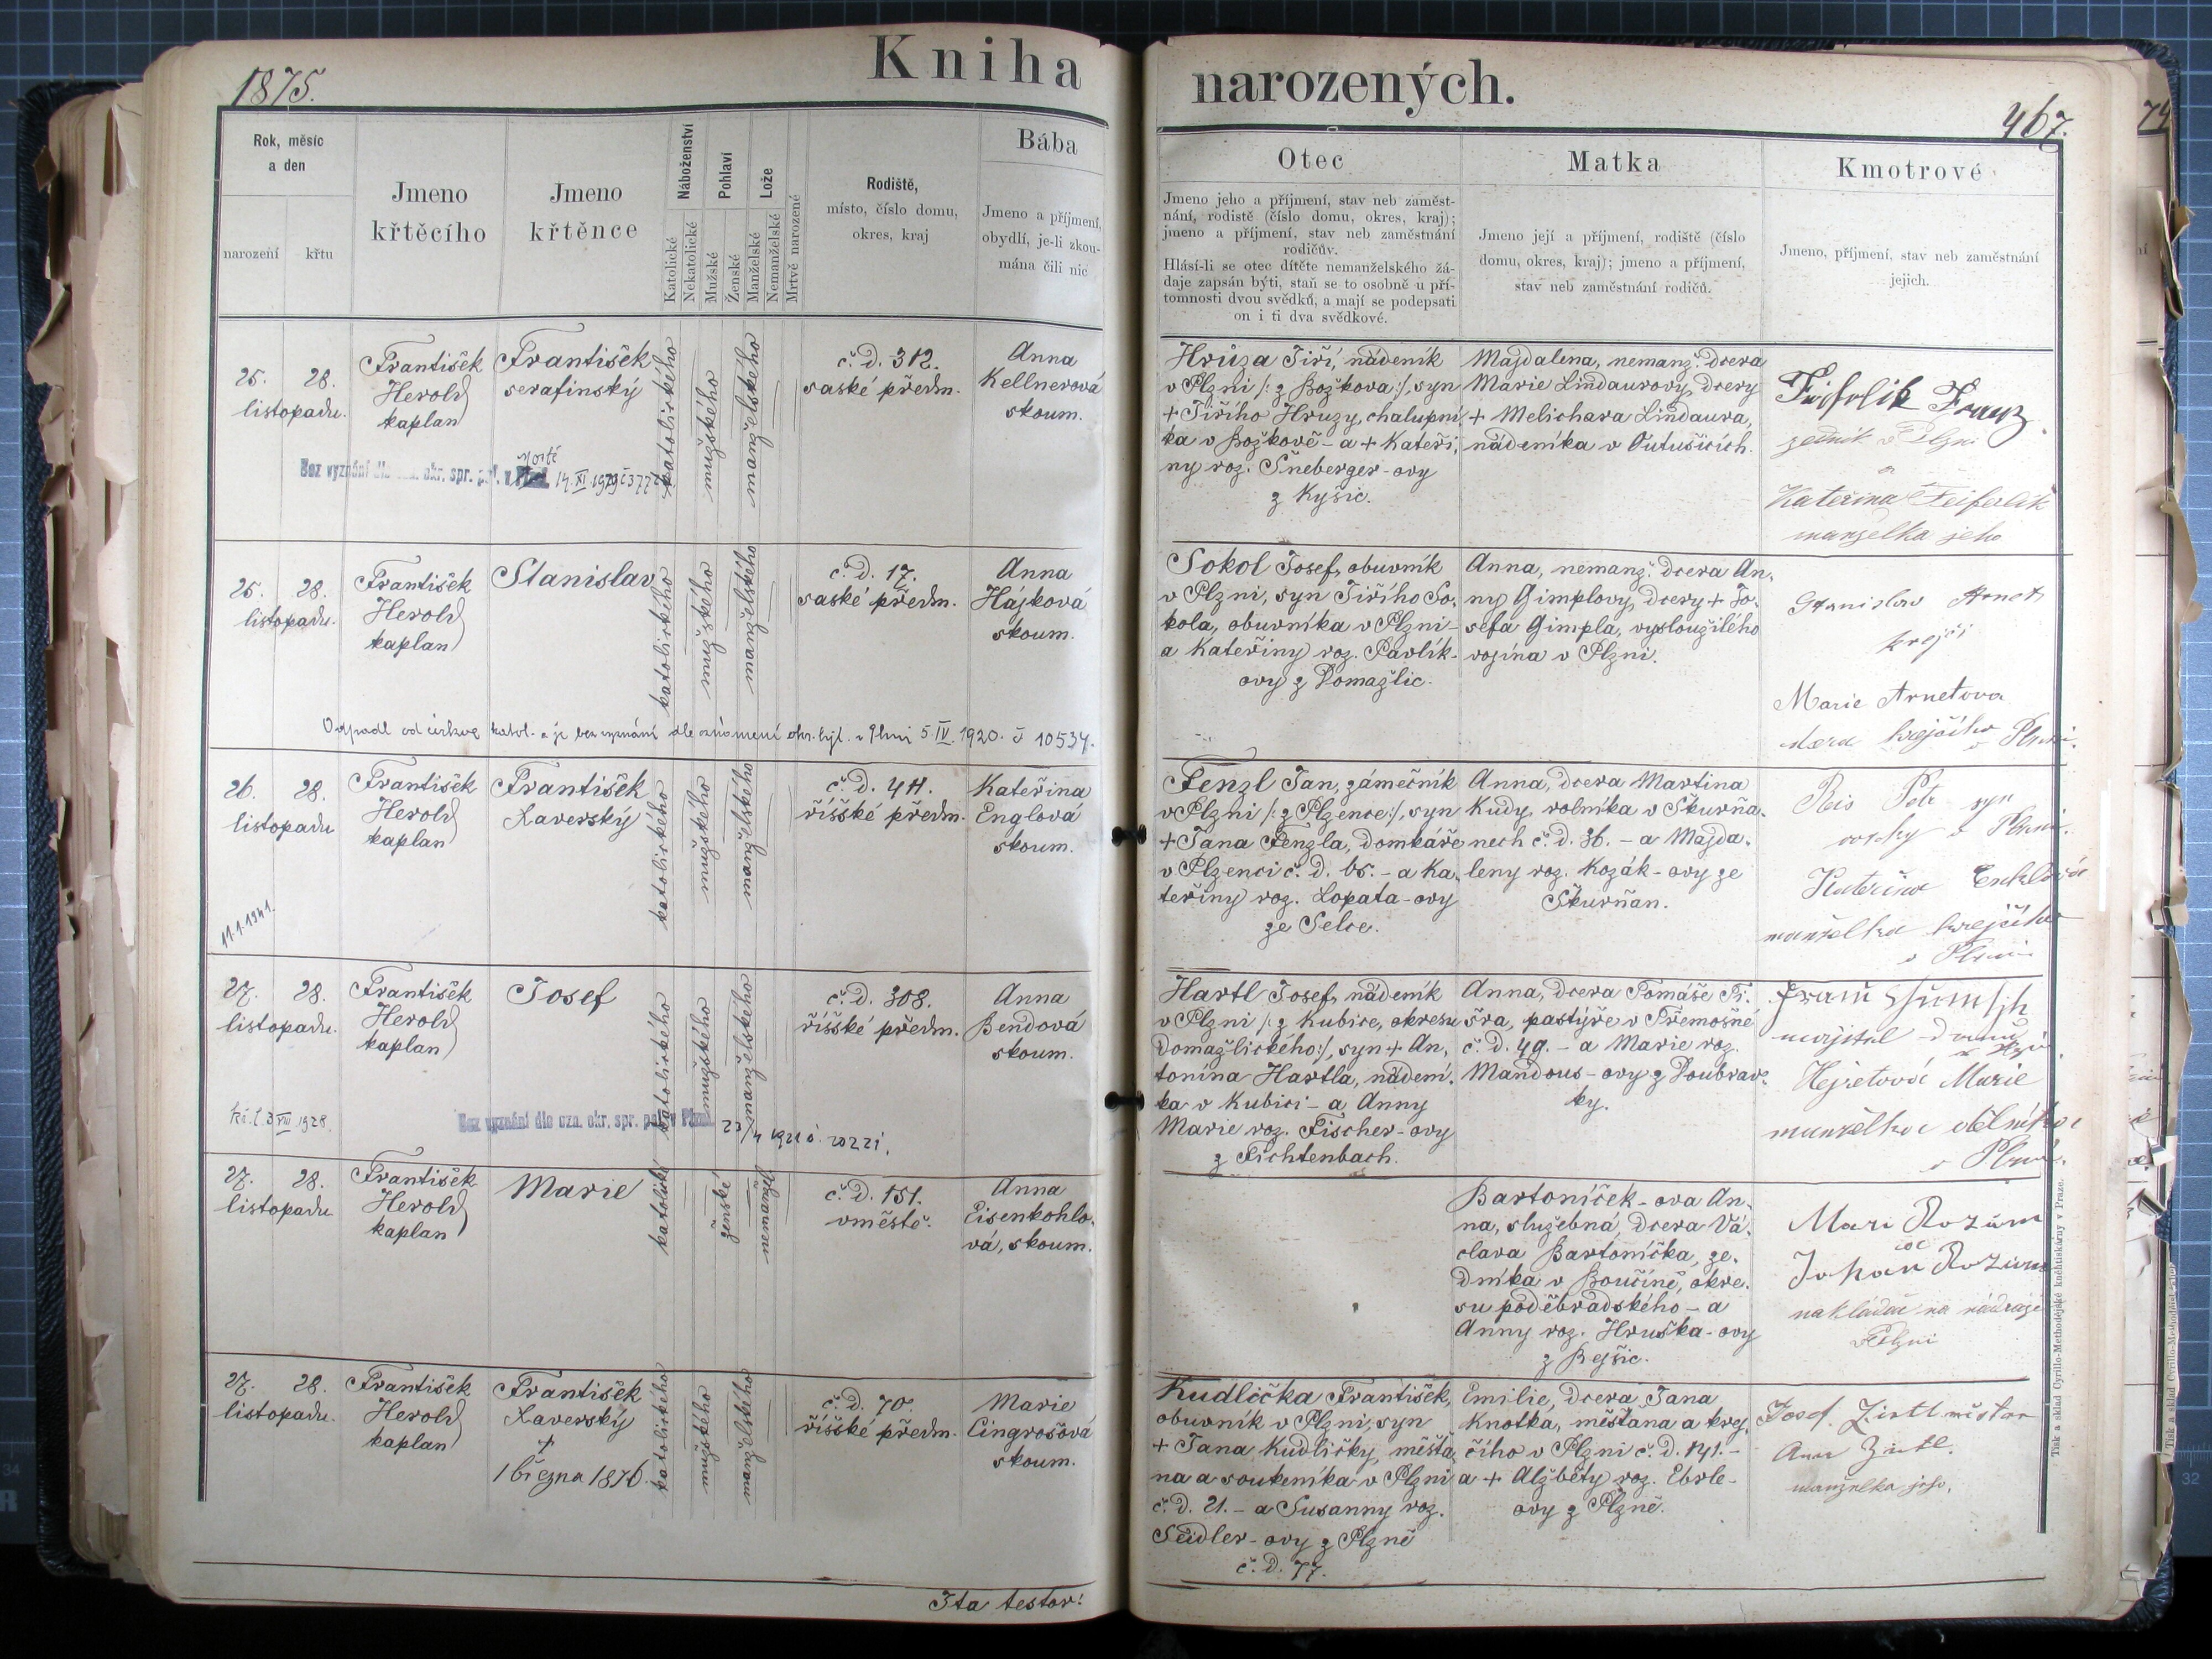 1875.
Kniha
narozených.
467.
Rok, měsíc
a den
narození
křtu
Jmeno
křtěcího
Jmeno
křtěnce
Náboženství
Katolické
Nekatolické
Pohlaví
Mužské
Ženské
Lože
Manželské
Nemanželské
Mrtvě narozené
Rodiště,
místo, číslo domu,
okres, kraj
Bába
Jmeno a příjmení,
obydlí, je-li zkou-
mána čili nic
Otec
Jmeno jeho a příjmení, stav neb zaměst-
nání, rodiště (číslo domu, okres, kraj);
jmeno a příjmení, stav neb zaměstnání
rodičův.
Hlásí-li se otec dítěte nemanželského žá-
daje zapsán býti, staň se to osobně u pří-
tomnosti dvou svědků, a mají se podepsati
on i ti dva svědkové.
Matka
Jmeno její a příjmení, rodiště (číslo
domu, okres, kraj); jmeno a příjmení,
stav neb zaměstnání rodičů.
Kmotrové
Jmeno, příjmení, stav neb zaměstnání
jejich.
25. 28.
listopadu.
František
Herold
kaplan
František
serafinský
katolického
mužského
manželského
č. d. 312.
saské předm.
Anna
Kellnerová
skoum.
Bez vyznání dle ozn. okr. spr. pol. v 14. XI 1929
Hrůza Jiří, nádeník
v Plzni /: z Božkova :/, syn
+ Jiřího Hruzy, chalupní-
ka v Božkově - a + Kateři-
ny roz. Šneberger-ovy
z Kyšic.
Majdalena, nemanž. dcera
Marie Lindaurovy, dcery
+ Melichara Lindaura,
nádeníka v Outušicích.
Franz
zedník v Plzni
a
Kateřina Feiferlik
manželka jeho
25. 28.
listopadu.
František
Herold
kaplan
Stanislav
katolického
mužského
manželského
č. d. 17.
saské předm.
Anna
Hájková
skoum.
Odpadl od církve katol. a je bez vyznání dle oznámení okr. hejt. v Plzni 5. IV. 1920. č 10534.
Sokol Josef, obuvník
v Plzni, syn Jiřího So-
kola, obuvníka v Plzni -
a Kateřiny roz. Pavlík-
ovy z Domažlic.
Anna, nemanž. dcera An-
ny Gimplovy, dcery + Jo-
sefa Gimpla, vysloužilého
vojína v Plzni.
Stanislav Arnet
krejčí
Marie Arnetova
dcera krejčího v Plzni.
26. 28.
listopadu
František
Herold
kaplan
František
Xaverský
katolického
mužského
manželského
č. d. 411.
říšské předm.
Kateřina
Englová
skoum.
11.1.1941.
Fenzl Jan, zámečník
v Plzni /: z Plzence :/, syn
+ Jana Fenzla, domkáře
v Plzenci č. d. 65. - a Ka-
teřiny roz. Lopata-ovy
ze Selce.
Anna, dcera Martina
Kudy, rolníka v Skurňa-
nech č. d. 36. - a Majda-
leny roz. Kozák-ovy ze
Skurňan.
Reis Petr syn
v Plzni.
Kateřina
manželka krejčího
v Plzni
27. 28.
listopadu.
František
Herold
kaplan
Josef
katolického
mužského
manželského
č. d. 308.
říšské předm.
Anna
Bendová
skoum.
3 VIII 1928.
Bez vyznání dle ozn. okr. spr. pol. v Plzni 23/4 1921 č. 20221.
Hartl Josef, nádeník
v Plzni /: z Kubice, okresu
Domažlického :/, syn + An-
tonína Hartla, nádení-
ka v Kubici - a Anny
Marie roz. Fischer-ovy
z Fichtenbach.
Anna, dcera Tomáše Fi-
šra, pastýře v Třemošné
č. d. 49. - a Marie roz.
Mandous-ovy z Doubrav-
ky.
majitel domu
Marie
manželka
v Plzni.
27. 28.
listopadu
František
Herold
kaplan
Marie
katolické
ženské
nemanžel
č. d. 151.
v městě.
Anna
Eisenkohlo-
vá, skoum.
Bartoníček-ova An-
na, služebná, dcera Vá-
clava Bartoníčka, ze-
dníka v Boučině, okre-
su poděbradského - a
Anny roz. Hruška-ovy
z Bejšic.
Mari Rozum
Johan Rozum
nakládač na nádraží
v Plzni
27. 28.
listopadu.
František
Herold
kaplan
František
Xaverský
+
1 března 1876.
katolického
mužského
manželského
č. d. 70.
říšské předm.
Marie
Cingrošová
skoum.
Kudlička František,
obuvník v Plzni, syn
+ Jana Kudličky, měšťa-
na a soukeníka v Plzni
č. d. 21. - a Susanny roz.
Seidler-ovy z Plzně
č. d. 77.
Emilie, dcera Jana
Knotka, měšťana a krej-
čího v Plzni č. d. 141. -
a + Alžběty roz. Eberle-
ovy z Plzně.
Josef Zirtl
manželka jeho.
Ita testor!
Tisk a sklad Cyrillo-Methodějské knihtiskárny v Praze.